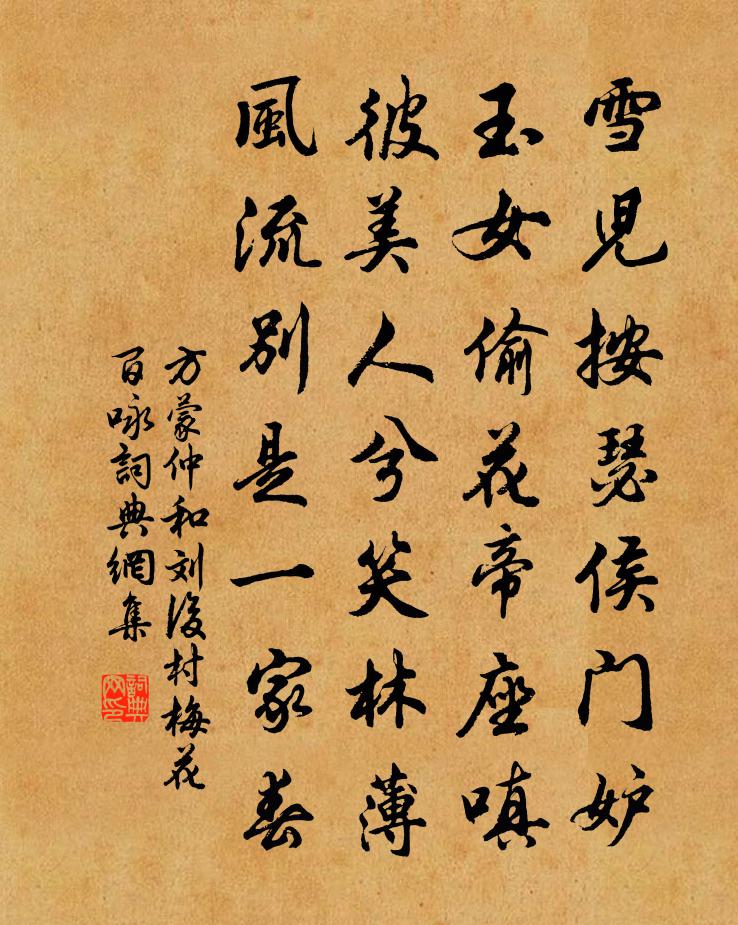 雪児按瑟侯门妒
玉女偷花帝座嗔
彼美人兮笑林薄
風流别是一家春
方蒙仲和刘後村梅花
百咏詞典網集
詞典网印